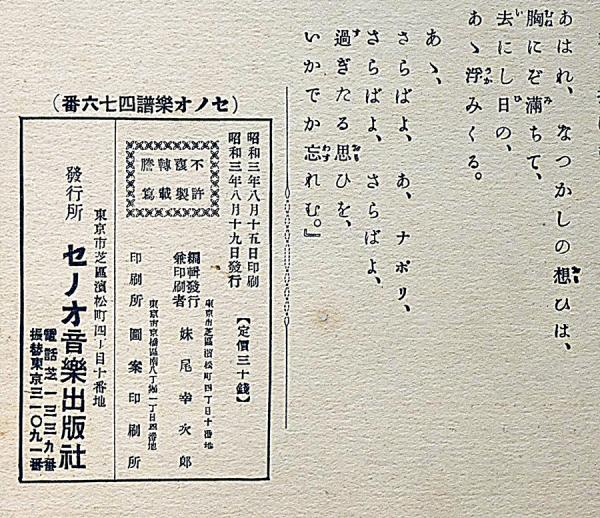 あはれ、なつかしの想ひは、
胸にぞ滿ちて、
去にし日の、
あゝ浮みくる。
あゝ、
さらばよ、あゝ、ナポリ、
さらばよ、さらばよ、
過ぎたる思ひを、
いかでか忘れむ。』
(セノオ樂譜四七六番)
昭和三年八月十五日印刷
昭和三年八月十九日發行
【定價三十錢】
不許
複製
轉載
謄寫
東京市芝區濱松町四丁目十番地
編輯發行
兼印刷者 妹尾幸次郎
東京市京橋區南八丁堀一丁目四番地
印刷所 圖案印刷所
東京市芝區濱松町四ノ目十番地
發行所 セノオ音樂出版社
電話芝一三三九番
振替東京三一〇九一番